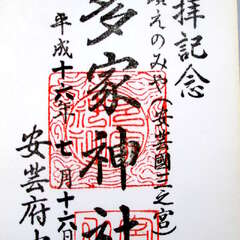 拝記念
埃えのみや(安芸國三之宮)
多家神社
平成十六年七月十六日
安芸府